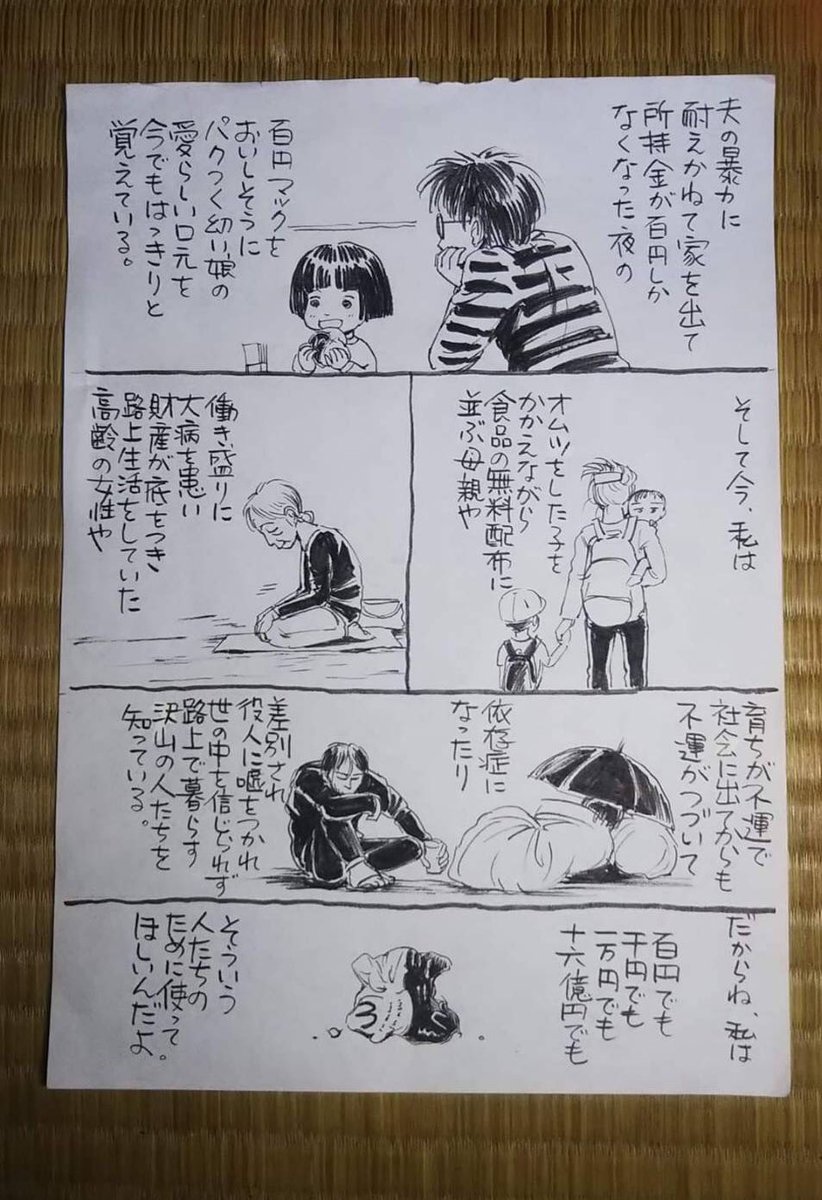 夫の暴力に
耐えかねて家を出て
所持金が百円しか
なくなった夜の
百円マックを
おいしそうに
パクつく幼い娘の
愛らしい口元を
今でもはっきりと
覚えている。
そして今、私は
オムツをした子を
かかえながら
食品の無料配布に
並ぶ母親や
働き盛りに
大病を患い
財産が底をつき
路上生活をしていた
高齢の女性や
育ちが不運で
社会に出てからも
不運がつづいて
依存症に
なったり
差別され
役人に嘘をつかれ
世の中を信じられず
路上で暮らす
沢山の人たちを
知っている。
だからね、私は
百円でも
千円でも
一万円でも
十六億円でも
そういう
人たちの
ために使って
ほしいんだよ。